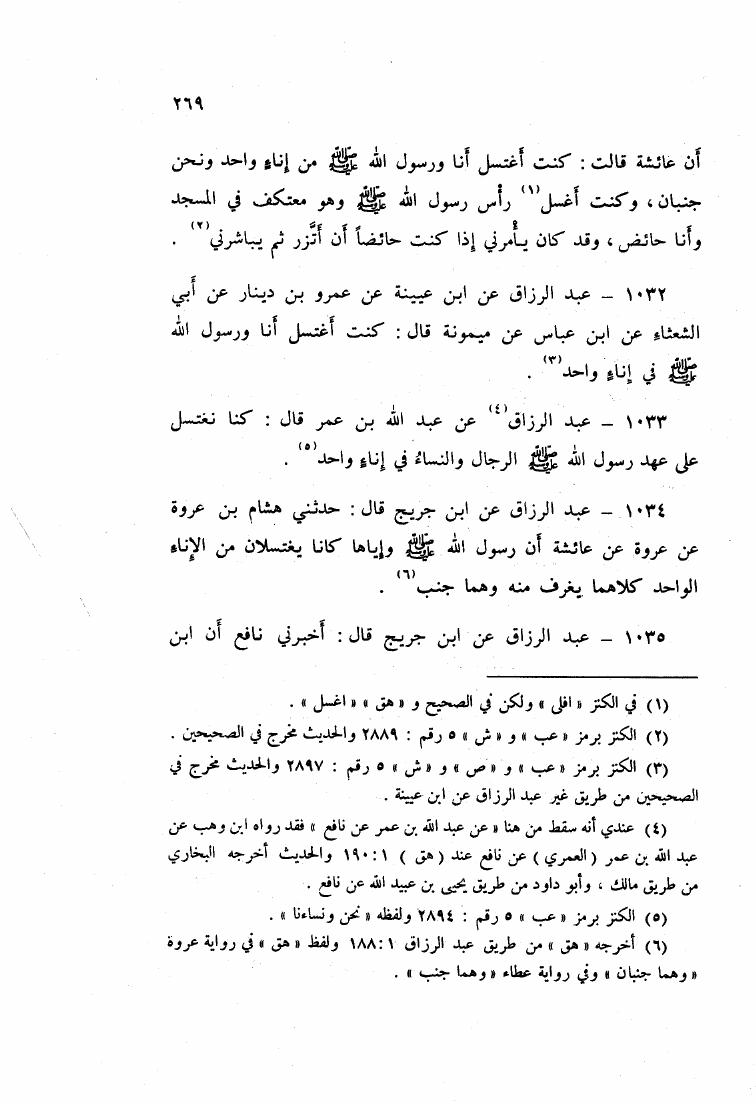 ٢٦٩
أن عائشة قالت : كنت أغتسل أنا ورسول الله ﷺ من إناءٍ واحد ونحن
جنبان ، وكنت أغسل(١) رأس رسول الله ﷺ وهو معتكف في المسجد
وأنا حائض ، وقد كان يأْمرني إذا كنت حائضاً أن أتَّزر ثم يباشرني(٢) .
١٠٣٢ – عبد الرزاق عن ابن عيينة عن عمرو بن دينار عن أبي
الشعثاء عن ابن عباس عن ميمونة قال : كنت أغتسل أنا ورسول الله
ﷺ في إناءٍ واحد(٣) .
١٠٣٣ – عبد الرزاق(٤) عن عبد الله بن عمر قال : كنا نغتسل
على عهد رسول الله ﷺ الرجال والنساءُ في إناءٍ واحد(٥) .
١٠٣٤ – عبد الرزاق عن ابن جريج قال : حدثني هشام بن عروة
عن عروة عن عائشة أن رسول الله ﷺ وإياها كانا يغتسلان من الإناء
الواحد كلاهما يغرف منه وهما جنب(٦) .
١٠٣٥ – عبد الرزاق عن ابن جريج قال : أخبرني نافع أن ابن
(١) في الكنز « افلى » ولكن في الصحيح و « هق » « اغسل » .
(٢) الكنز برمز « عب » و « ش » ٥ رقم : ٢٨٨٩ والحديث مخرج في الصحيحين .
(٣) الكنز برمز « عب » و « ص » و « ش » ٥ رقم : ٢٨٩٧ والحديث مخرج في
الصحيحين من طريق غير عبد الرزاق عن ابن عيينة .
(٤) عندي أنه سقط من هنا « عن عبد الله بن عمر عن نافع » فقد رواه ابن وهب عن
عبد الله بن عمر (العمري) عن نافع عند (هق ) ١ : ١٩٠ والحديث أخرجه البخاري
من طريق مالك ، وأبو داود من طريق يحيى بن عبيد الله عن نافع .
(٥) الكنز برمز « عب » ٥ رقم : ٢٨٩٤ ولفظه « نحن ونساءنا » .
(٦) أخرجه « هق » من طريق عبد الرزاق ١ : ١٨٨ ولفظ « هق » في رواية عروة
« وهما جنبان » وفي رواية عطاء « وهما جنب » .